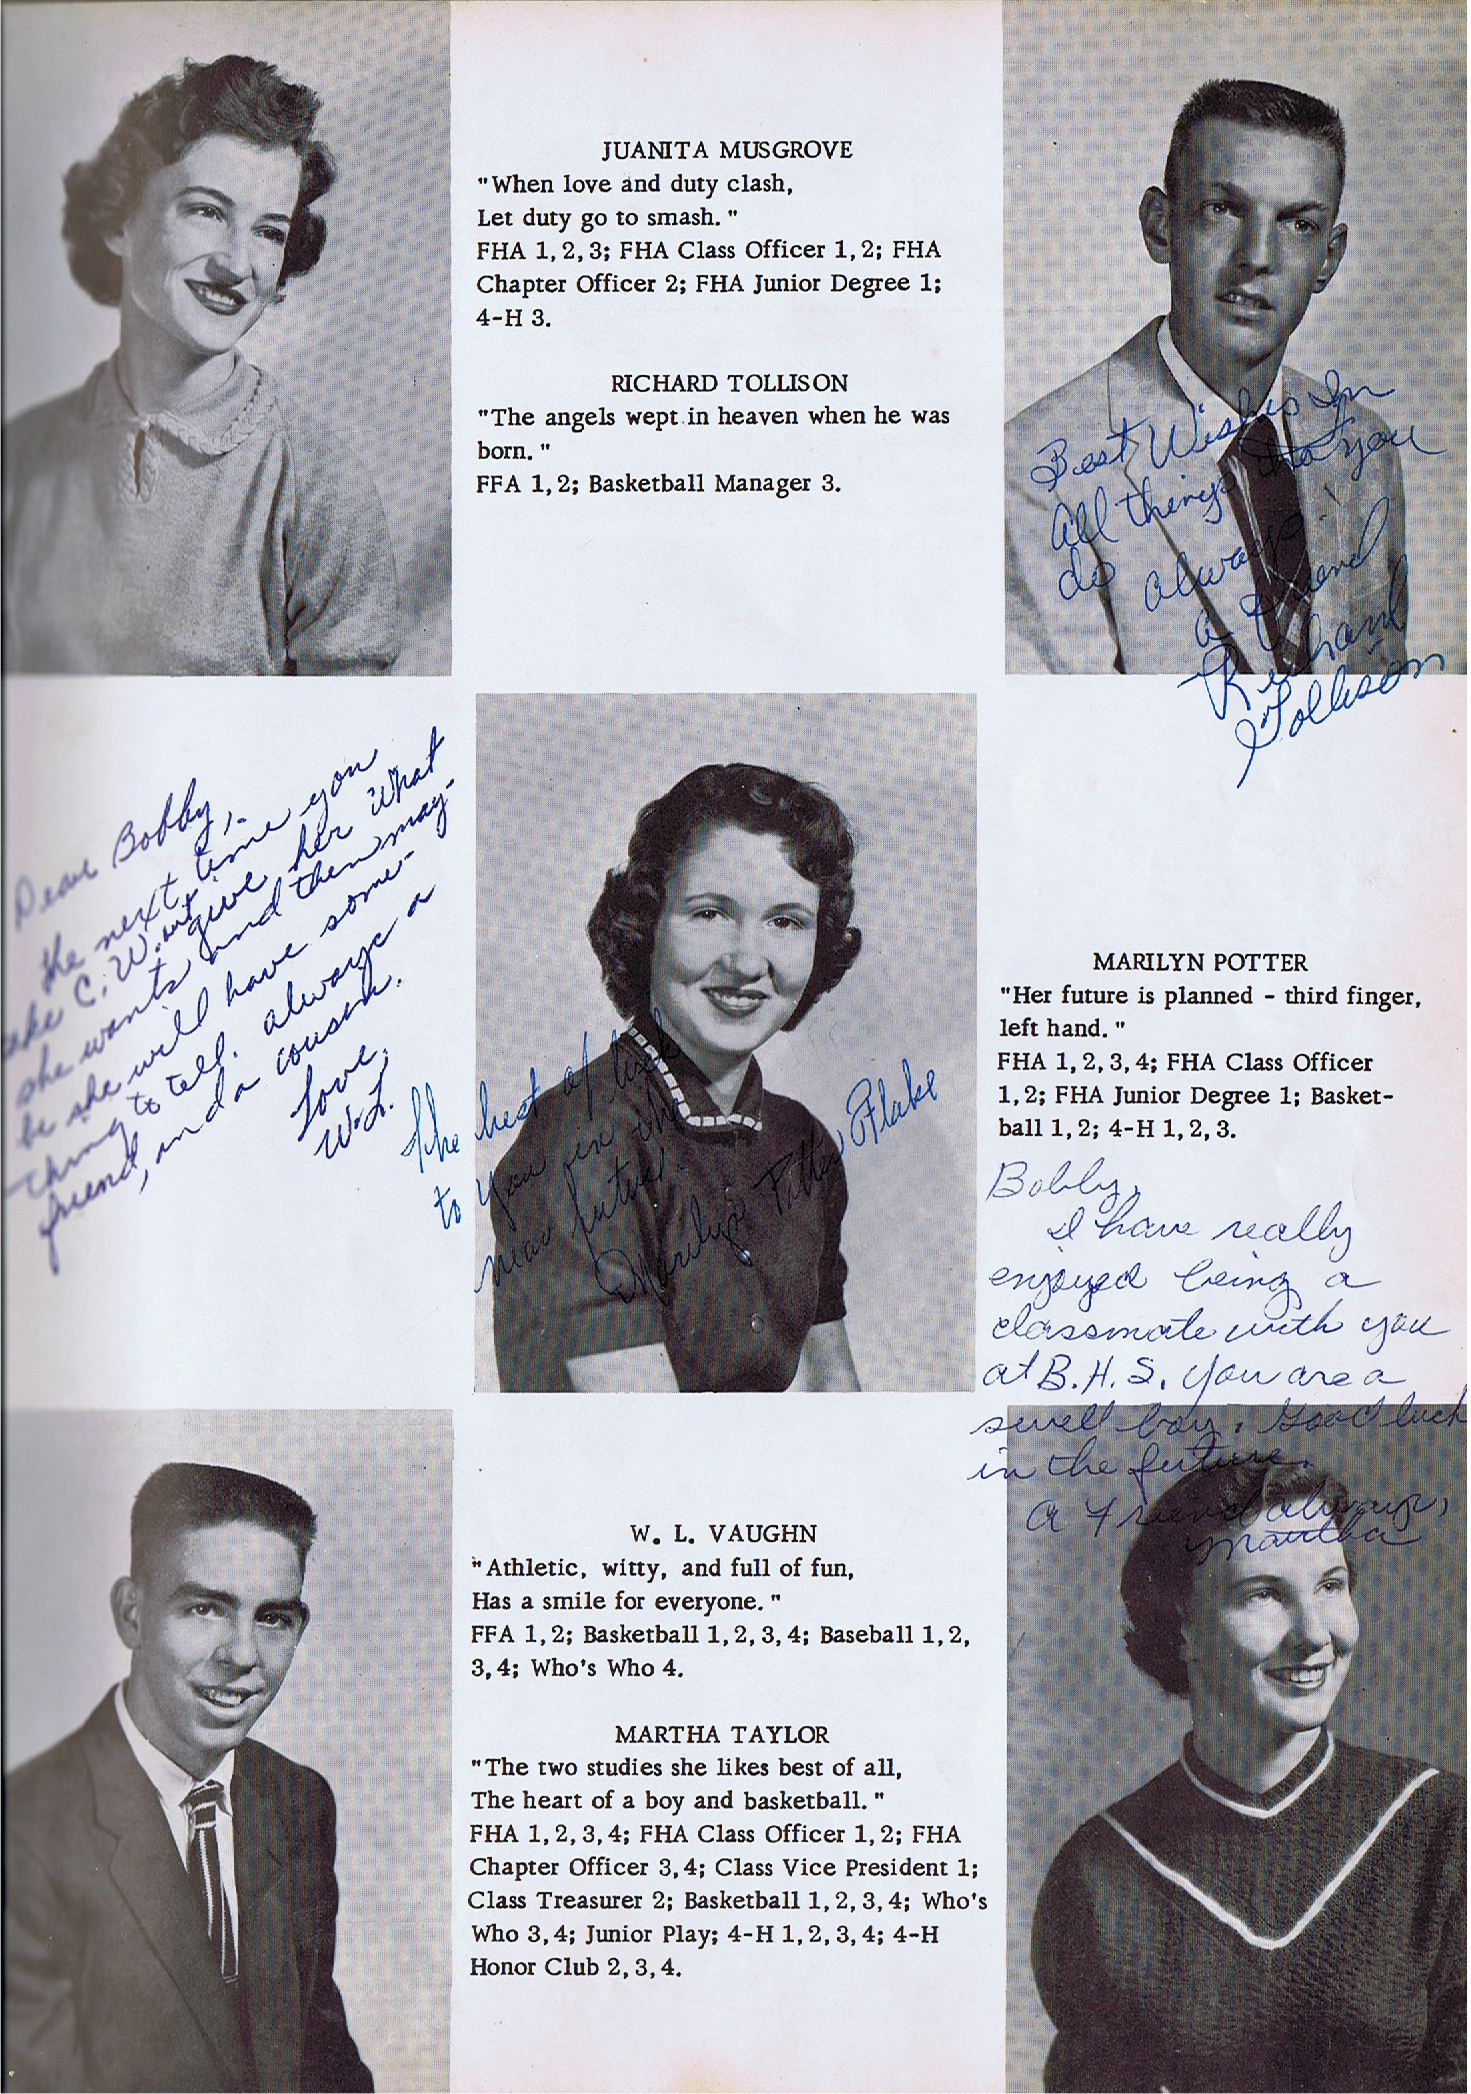 JUANITA MUSGROVE
"When love and duty clash,
Let duty go to smash."
FHA 1, 2, 3; FHA Class Officer 1, 2; FHA
Chapter Officer 2; FHA Junior Degree 1;
4-H 3.
RICHARD TOLLISON
"The angels wept in heaven when he was
born."
FFA 1, 2; Basketball Manager 3.
Best Wishes In
All things to you
do always
a friend
Richard
Tollison
Dear Bobby,
the next time you
take C. W. out give her what
she wants and then may-
be she will have some-
thing to tell. always a
friend, and a cousin.
Love,
W. L.
The best of luck
to you in the
near future.
Marilyn Potter Flake
MARILYN POTTER
"Her future is planned - third finger,
left hand."
FHA 1, 2, 3, 4; FHA Class Officer
1, 2; FHA Junior Degree 1; Basket-
ball 1, 2; 4-H 1, 2, 3.
Bobby,
I have really
enjoyed being a
classmate with you
at B.H.S. You are a
swell boy. Good luck
in the future.
A Friend always,
Martha
W. L. VAUGHN
"Athletic, witty, and full of fun,
Has a smile for everyone."
FFA 1, 2; Basketball 1, 2, 3, 4; Baseball 1, 2,
3, 4; Who's Who 4.
MARTHA TAYLOR
"The two studies she likes best of all,
The heart of a boy and basketball."
FHA 1, 2, 3, 4; FHA Class Officer 1, 2; FHA
Chapter Officer 3, 4; Class Vice President 1;
Class Treasurer 2; Basketball 1, 2, 3, 4; Who's
Who 3, 4; Junior Play; 4-H 1, 2, 3, 4; 4-H
Honor Club 2, 3, 4.